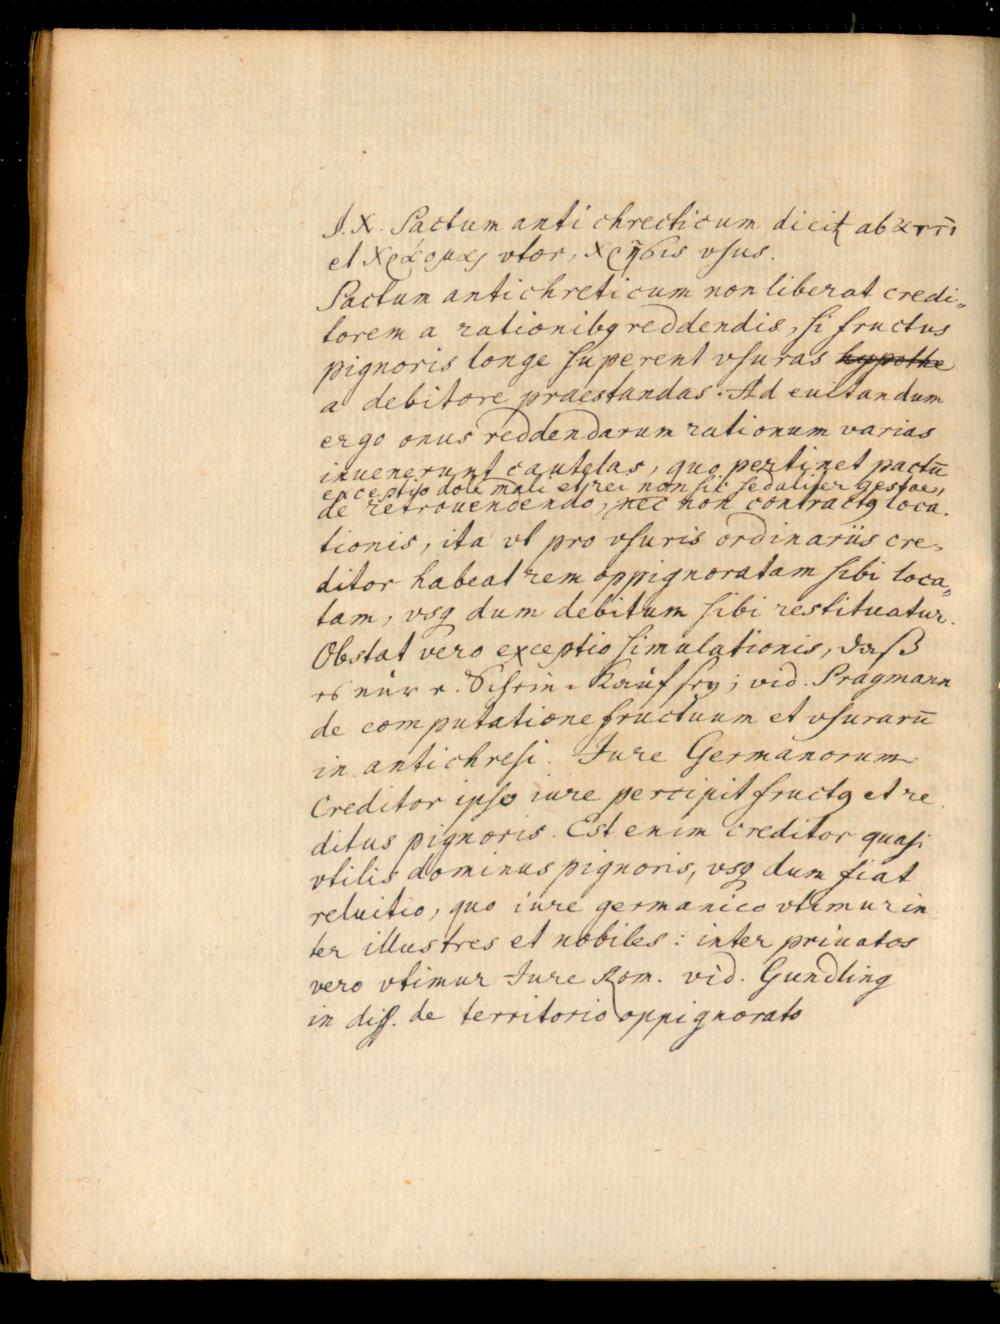 §. X. Pactum antichrecticum dicitꝛ ab ἀντὶ
et χράομαι vtor, χρῆσις vsus.
Pactum antichreticum non liberat credi„
torem a rationibꝗ reddendis, si fructus
pignoris longe superent vsuras hypothe
a debitore praestandas. Ad euitandum
ergo onus reddendarum rationum varias
invenerunt cautelas, quo pertinet pactū
exceptio doli mali et rei non sic sed aliter gestae,
de retrovendendo, nec non contractꝗ loca.
tionis, ita vt pro vsuris ordinariis cre„
ditor habeat rem oppignoratam sibi loca„
tam, vsꝗ dum debitum sibi restituatur.
Obstat vero exceptio simulationis, daß
es nur e. Schein-Kauf sey; vid. Pragmann
de computatione fructuum et vsurarū
in antichresi. Jure Germanorum
Creditor ipso iure percipit fructꝗ et re
ditus pignoris. Est enim creditor quasi
vtilis dominus pignoris, vsꝗ dum fiat
reluitio, quo iure germanico vtimur in
ter illustres et nobiles: inter privatos
vero vtimur Jure Rom. vid. Gundling
in diss. de territorio oppignorato